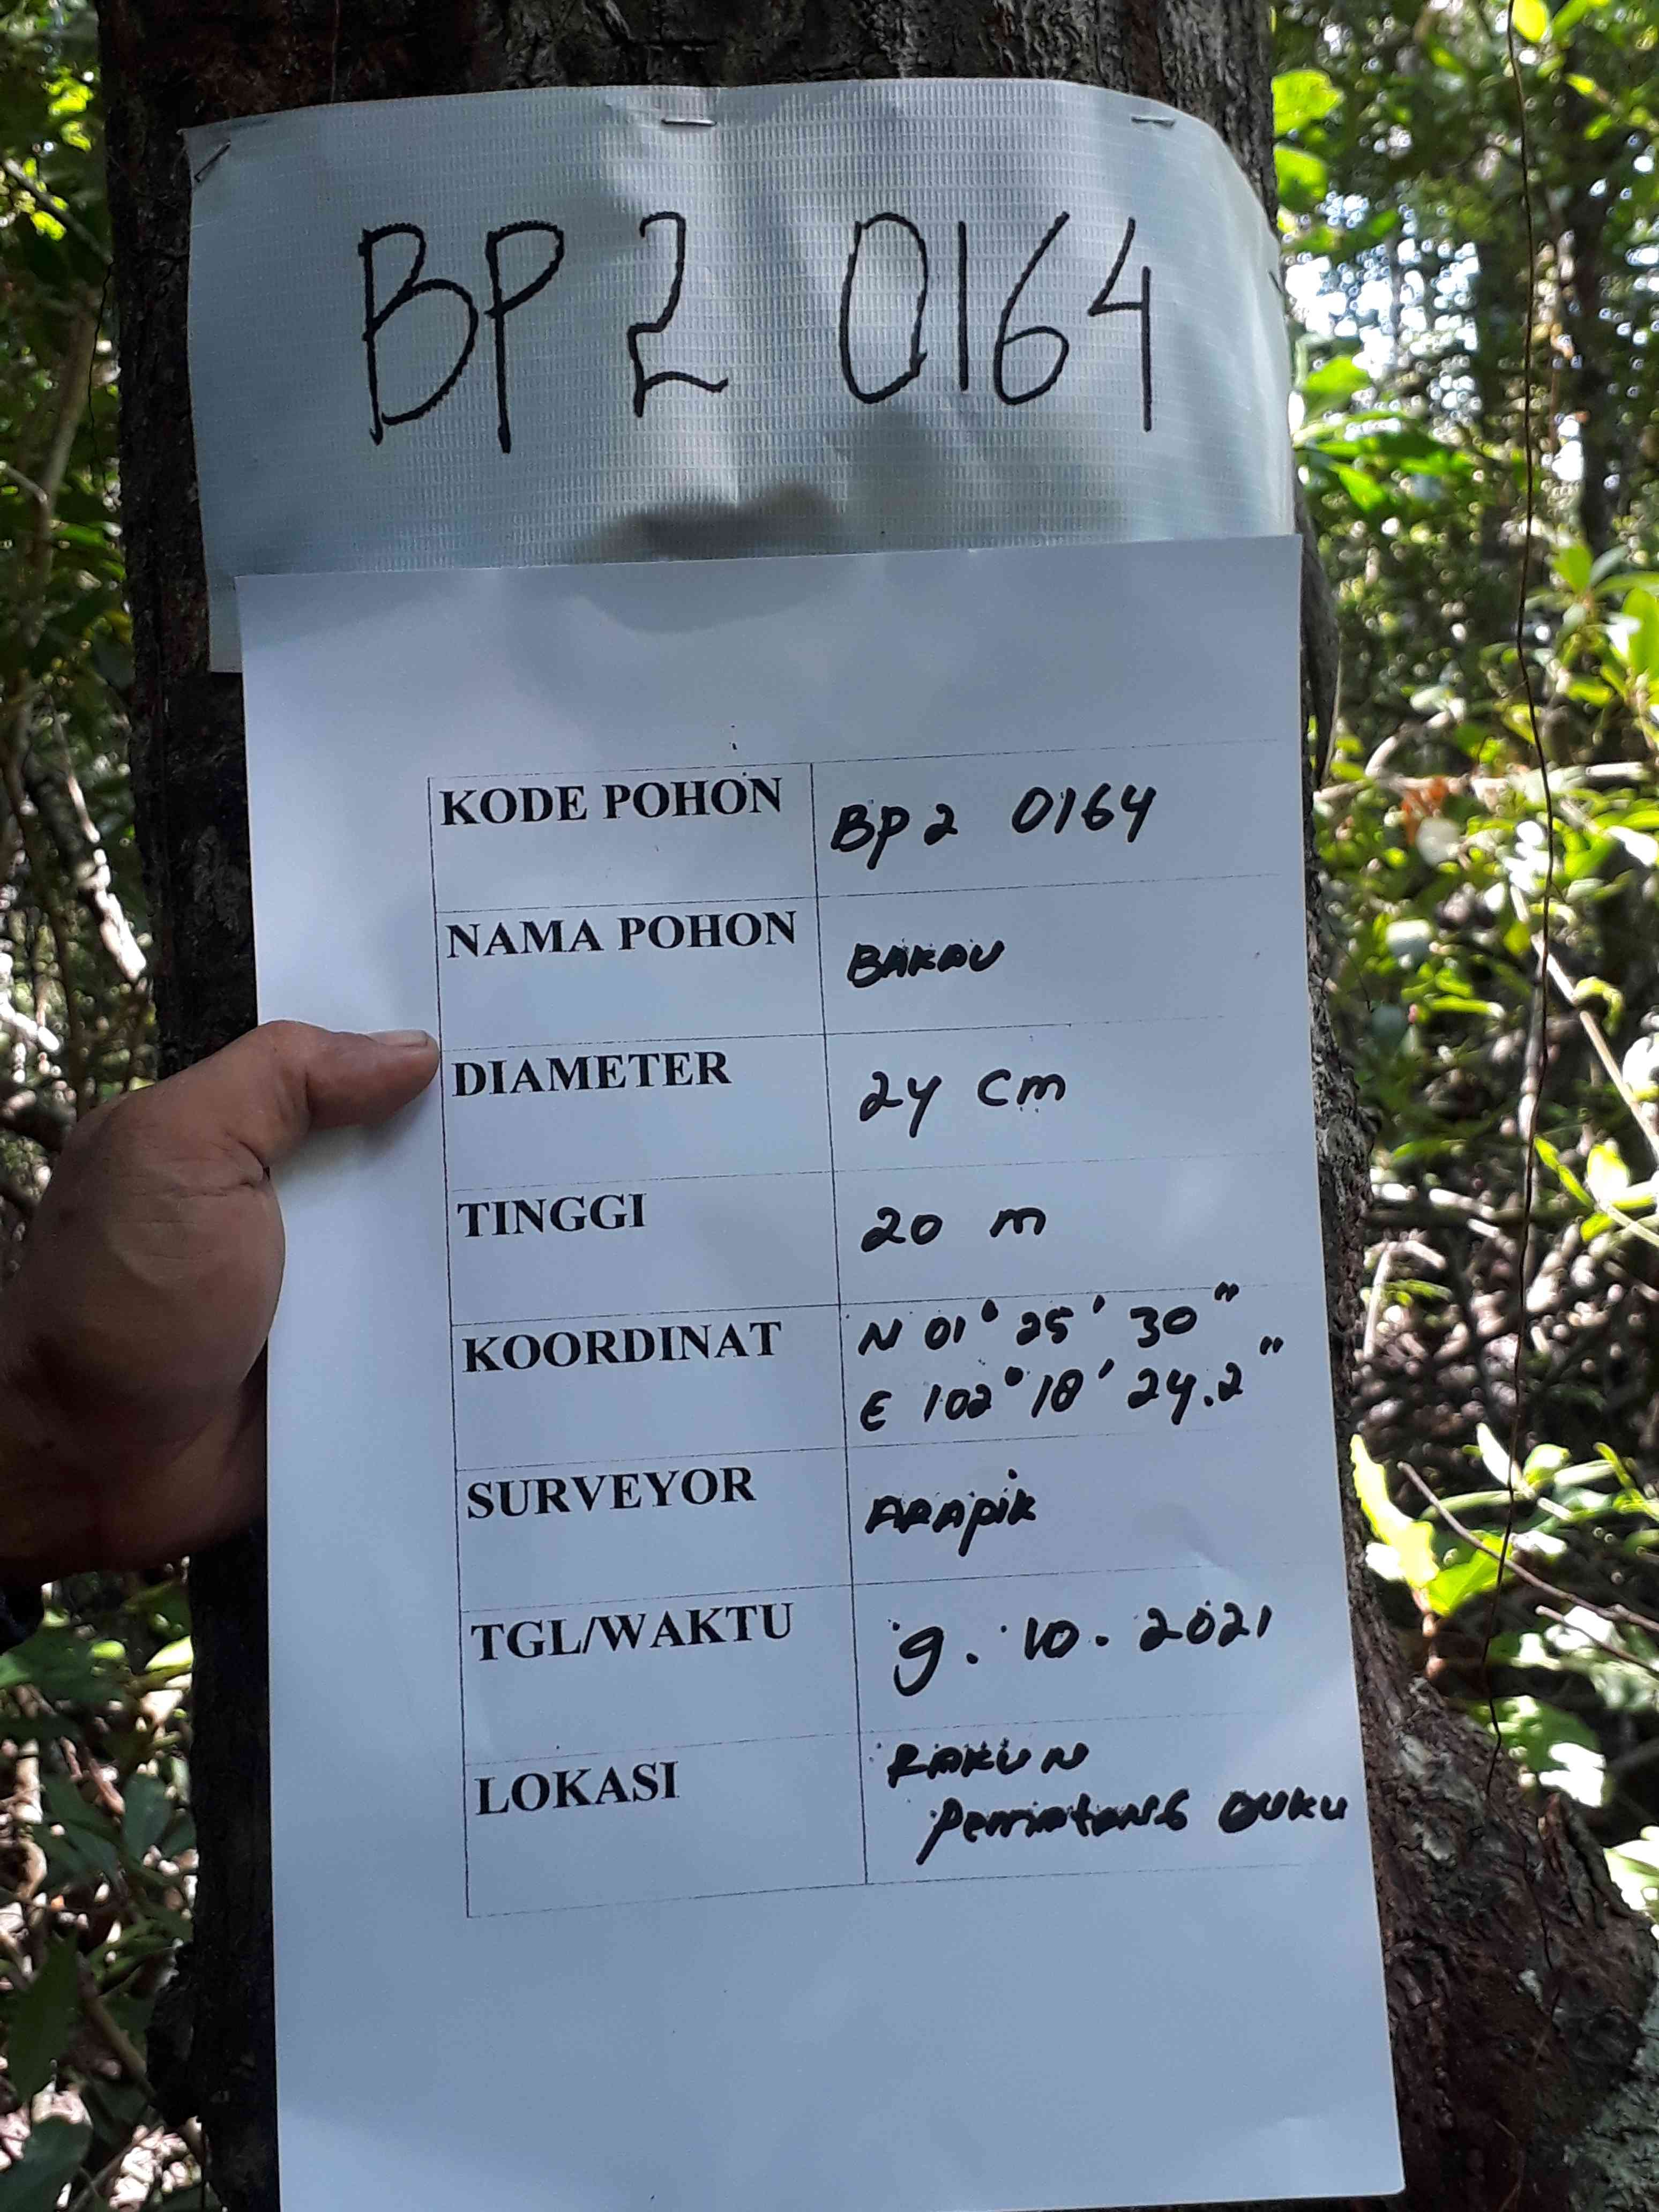 BP 2 0164
KODE POHON BP2 0164
NAMA POHON BAKAU
DIAMETER 24 cm
TINGGI 20 m
KOORDINAT N 01° 25' 30"
E 102° 18' 24.2"
SURVEYOR ARApik
TGL/WAKTU 9. 10. 2021
LOKASI RAKUN
PemAtANG DUKU